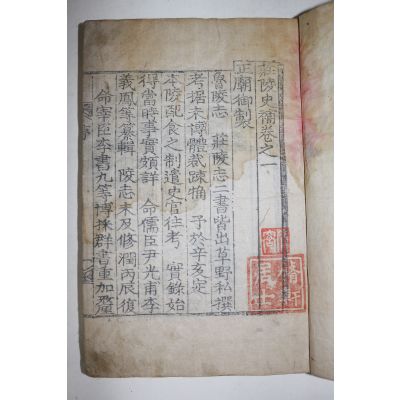 莊陵史補卷之一
正廟御製
魯陵志 莊陵志二書皆出草野私撰
考据未博體裁踈駁 予於辛亥定
本陵配食之制遣史官往考 實錄始
得當時事實頗詳 命儒臣尹光甫李
義鳳等纂輯 陵志未及修潤丙辰復
命宰臣李書九等博採群書重加釐